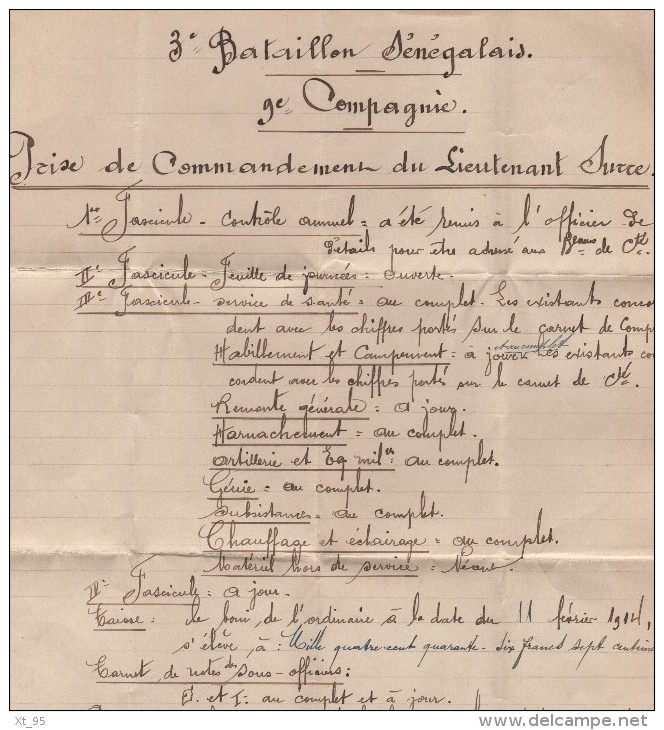 3e Bataillon Sénégalais.
9e Compagnie.
Prise de Commandement du Lieutenant Surre.
1er Fascicule - Contrôle annuel = a été remis à l'officier de
détails pour être adressé aux Beaux de Cté.
IIe Fascicule - Feuille de journées = Ouverte.
IIIe Fascicule - service de santé = au complet. Les existants concor
dent avec les chiffres portés sur le carnet de Comp
et au complet
Habillement et Campement = à jour. Les existants con
cordent avec les chiffres portés sur le carnet de Cté.
Remonte générale = a jour.
Harnachement = au complet.
Artillerie et Eq milre = au complet.
Génie = au complet.
Subsistances = au complet.
Chauffage et éclairage = au complet.
Matériel hors de service = Néant.
IVe Fascicule = a jour.
Caisse : le boni de l'ordinaire à la date du 11 février 1914,
s'élève à : Mille quatre cent quarante - dix francs sept centimes
Carnet de notes des sous-officiers :
P. et T. au complet et à jour.
Xt_95
www.delcampe.net